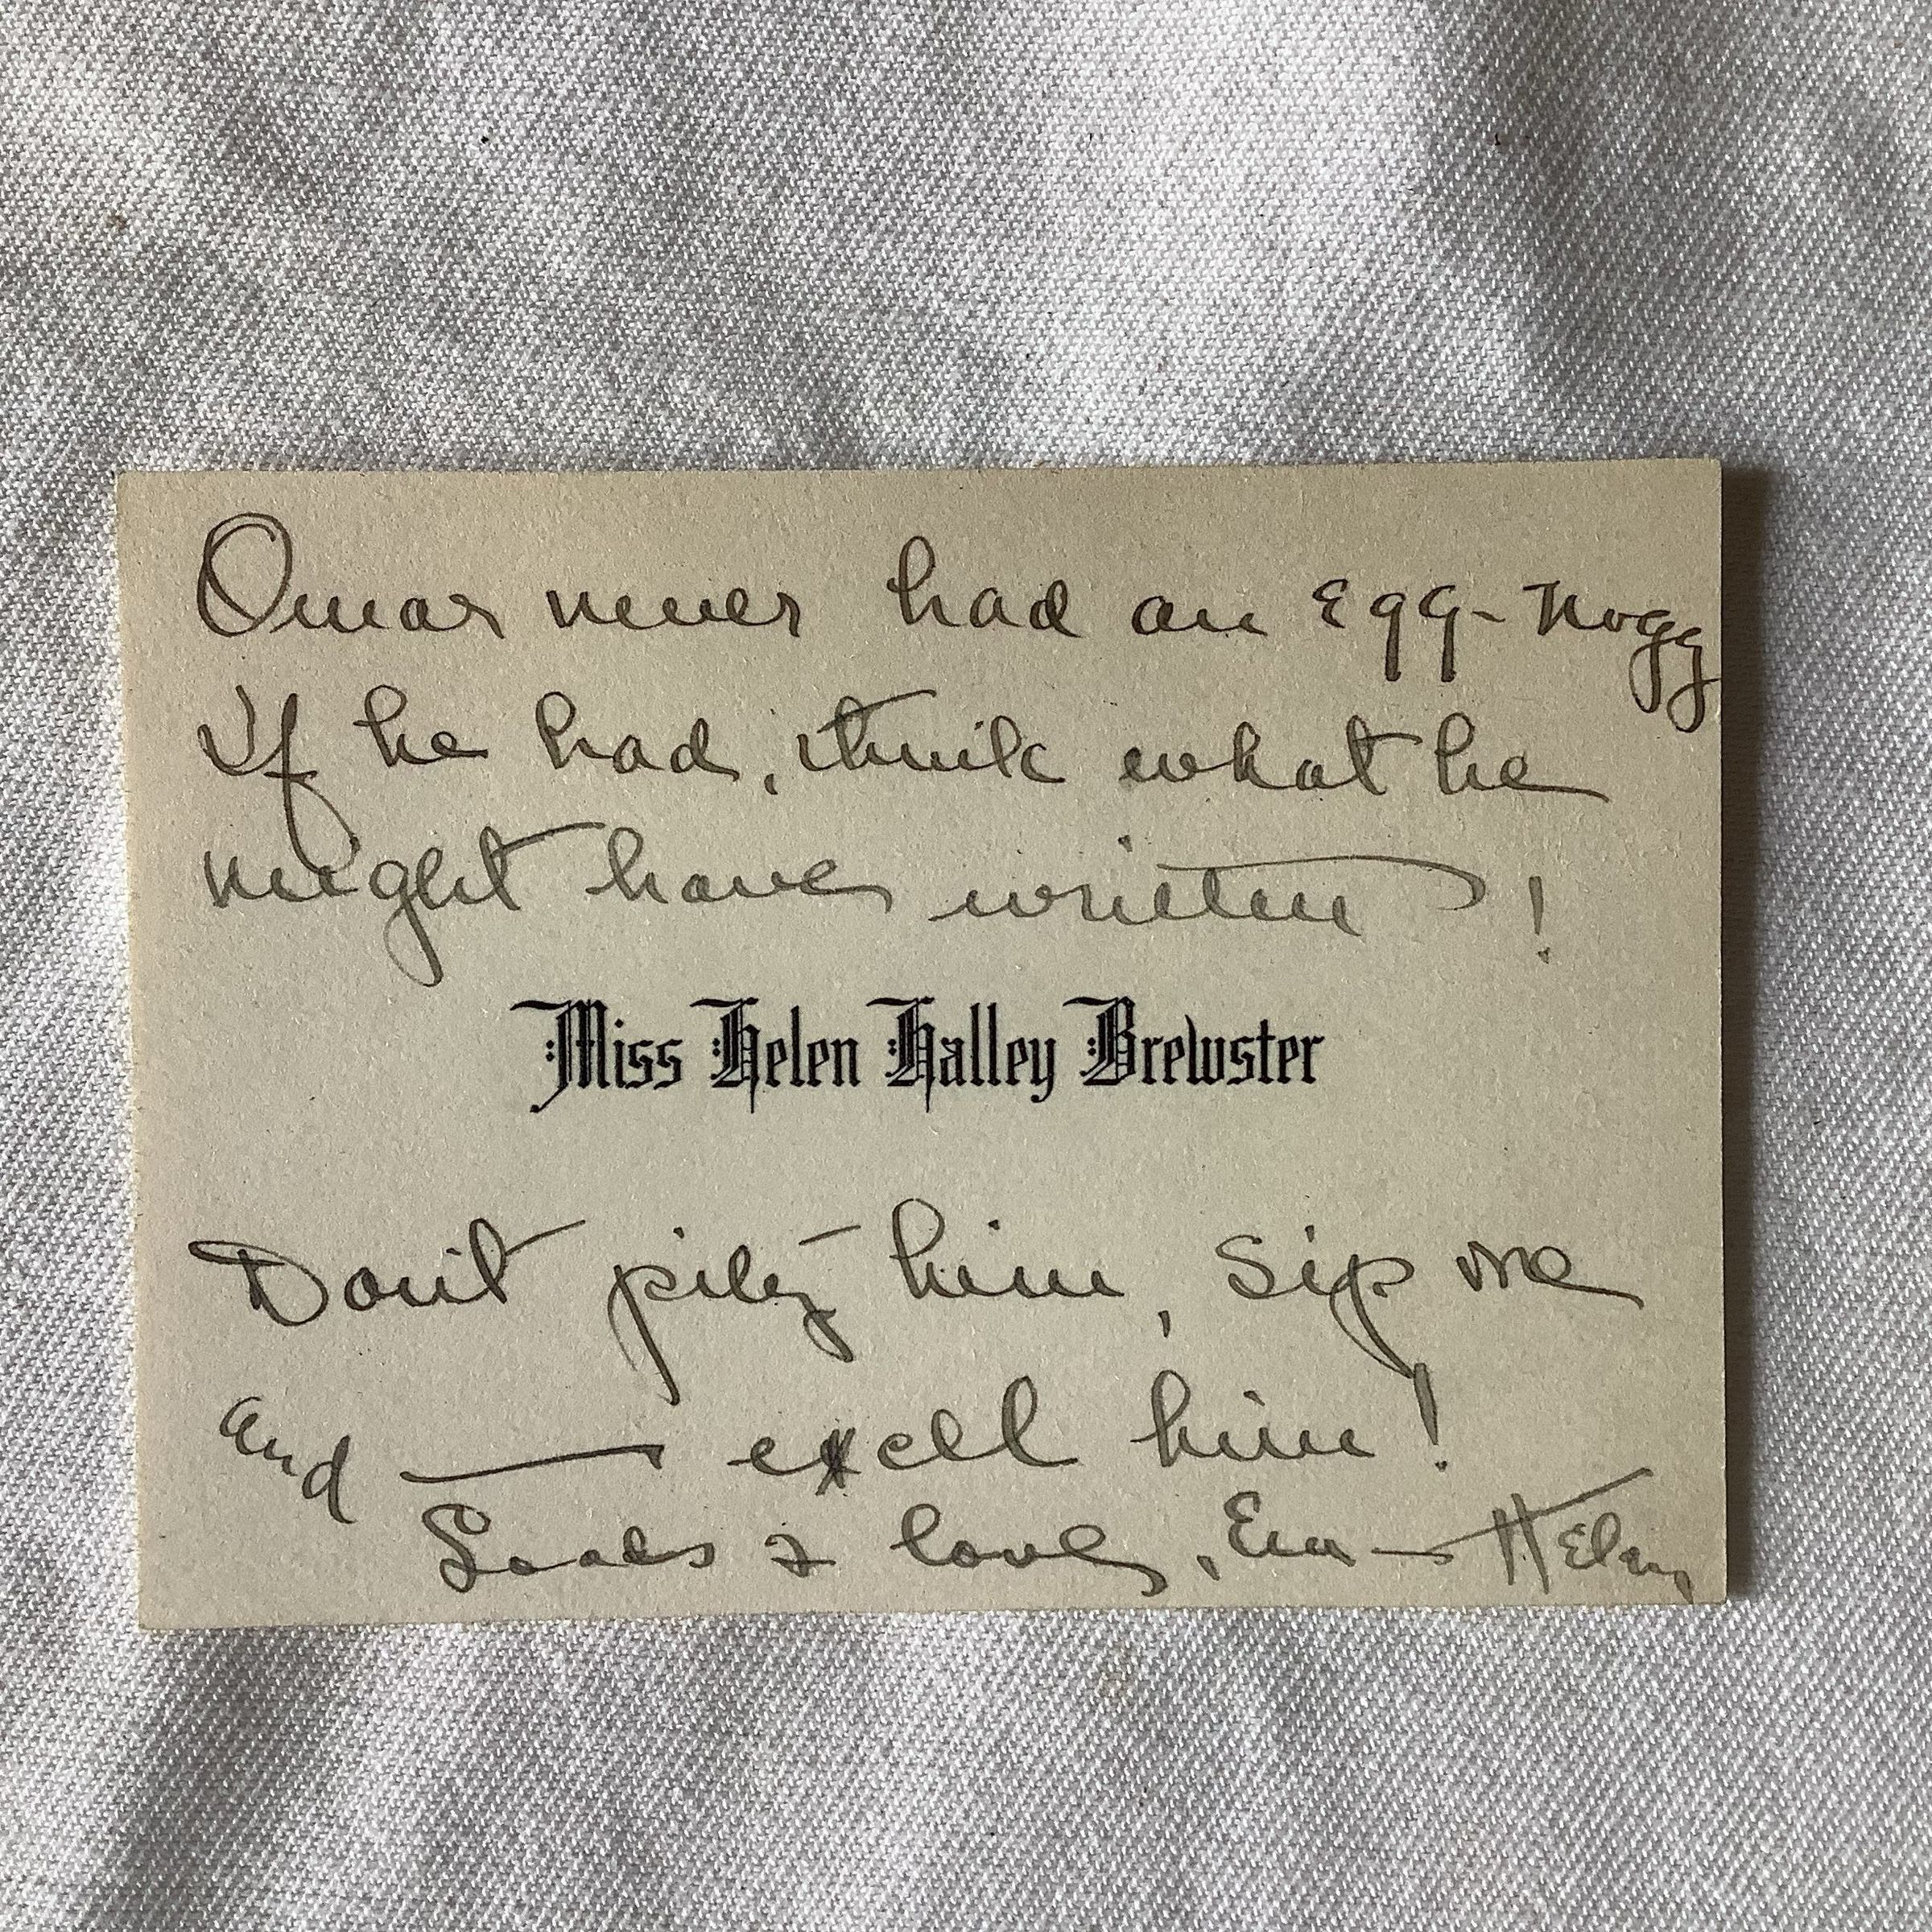 Omar never had an Egg-Nogg
If he had, think what he
might have written!
Miss Helen Halley Brewster
Don't pity him, sip one
and — excell him!
Loads & love, Em — Helen